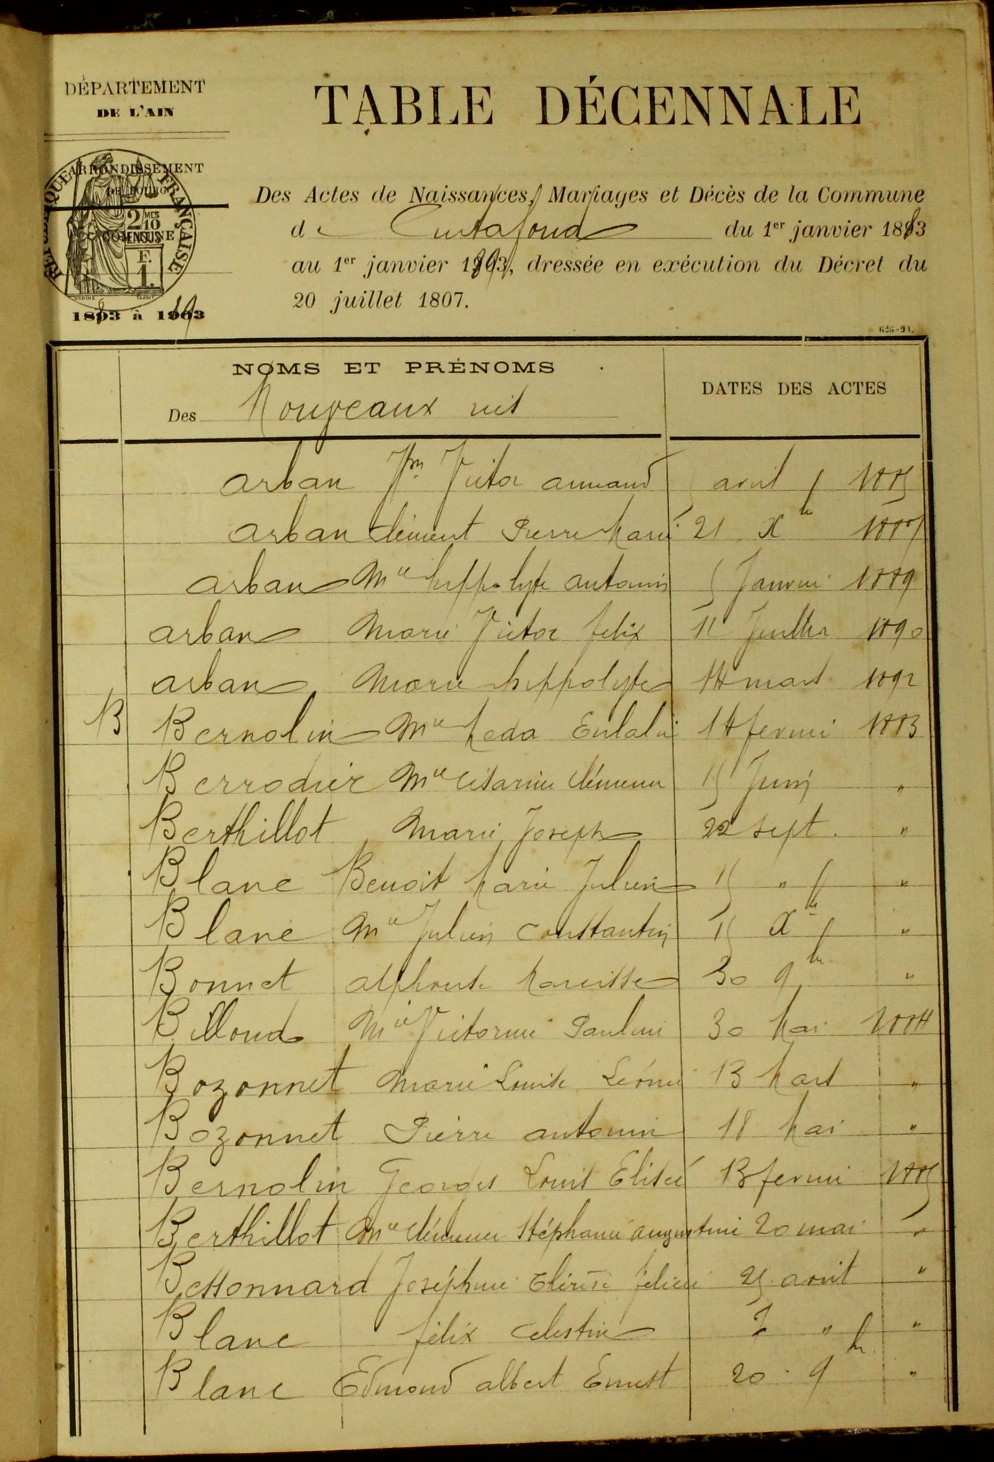 DÉPARTEMENT
DE L'AIN
TABLE DÉCENNALE
ARRONDISSEMENT
RÉPUBLIQUE FRANÇAISE
COMMUNE
1883 à 1893
Des Actes de Naissances, Mariages et Décès de la Commune
de Curtafond du 1er janvier 1883
au 1er janvier 1893, dressée en exécution du Décret du
20 juillet 1807.
NOMS ET PRÉNOMS
DATES DES ACTES
Des Nouveaux nés
arban Victor armand avril 1885
arban clément Pierre Marie 21 Xbre 1887
arban Mie hippolyte antonin 5 Janvier 1889
arban Marie Victor felix Juillet 1890
arban Marie hippolyte 14 mars 1892
B Bernolin Mie Leda Eulalie 14 fevrier 1883
Berrodier Mie Césarine clémence 15 Juin "
Berthillot Marie Joseph 22 sept. "
Blanc Benoit Marie Julien 15 " "
Blanc Mie Julien constantin 15 Xbre "
Bonnet alphonse Narcisse 30 9bre "
Billoud Mie Victorine Pauline 30 Mai 1884
Bozonnet Marie Louise Léonie 13 Mars "
Bozonnet Pierre antonin 18 Mai "
Bernolin Georges Louis Elisée 13 fevrier 1885
Berthillot Mie clémence Stéphanie augustine 20 mai "
Bessonnard Joséphine felicie 25 "
Blanc félix celestin "
Blanc Edmond albert Ernest 20 9bre "